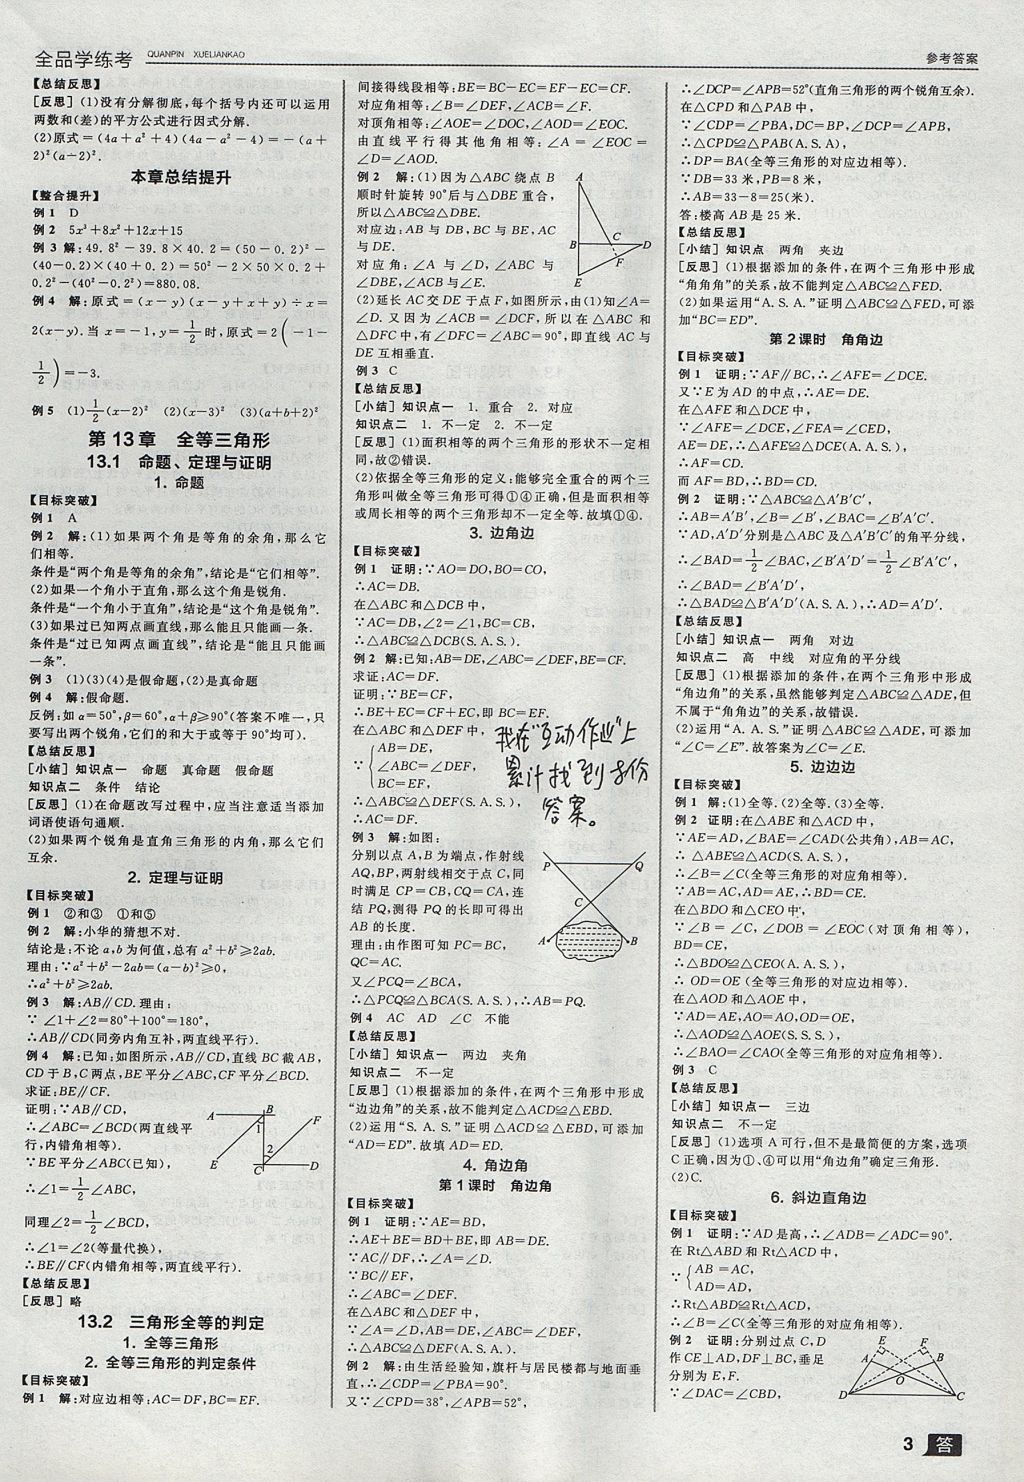 全品学练考 QUANPIN XUELIANKAO
参考答案
【总结反思】
[反思](1)没有分解彻底,每个括号内还可以运用
两数和(差)的平方公式进行因式分解.
(2)原式=(4a+a²+4)(4a-a²-4)=-(a+
2)²(a-2)².
本章总结提升
【整合提升】
例1 D
例2 5x³+8x²+12x+15
例3 解:49.8²-39.8×40.2=(50-0.2)²-
(40-0.2)×(40+0.2)=50²-2×50×0.2+
0.2²-(40²-0.2²)=880.08.
例4 解:原式=(x-y)(x-y+x+y)÷x=
2(x-y).当x=-1,y=1/2时,原式=2(-1-
1/2)=-3.
例5 (1)1/2(x-2)² (2)(x-3)² (3)(a+b+2)²
第13章 全等三角形
13.1 命题、定理与证明
1. 命题
【目标突破】
例1 A
例2 解:(1)如果两个角是等角的余角,那么它
们相等.
条件是“两个角是等角的余角”,结论是“它们相等”.
(2)如果一个角小于直角,那么这个角是锐角.
条件是“一个角小于直角”,结论是“这个角是锐角”.
(3)如果过已知两点画直线,那么能且只能画一条.
条件是“过已知两点画直线”,结论是“能且只能画
一条”.
例3 (1)(3)(4)是假命题,(2)是真命题
例4 解:假命题.
反例:如α=50°,β=60°,α+β≥90°(答案不唯一,只
要写出两个锐角,它们的和大于或等于90°均可).
【总结反思】
[小结]知识点一 命题 真命题 假命题
知识点二 条件 结论
[反思](1)在命题改写过程中,应当注意适当添加
词语使语句通顺.
(2)如果两个锐角是直角三角形的内角,那么它们
互余.
2. 定理与证明
【目标突破】
例1 ②和③ ①和⑤
例2 解:小华的猜想不对.
结论是:不论a,b为何值,总有a²+b²≥2ab.
理由:∵a²+b²-2ab=(a-b)²≥0,
∴a²+b²≥2ab.
例3 解:AB∥CD.理由:
∵∠1+∠2=80°+100°=180°,
∴AB∥CD(同旁内角互补,两直线平行).
例4 解:已知:如图所示,AB∥CD,直线BC截AB,
CD于B,C两点,BE平分∠ABC,CF平分∠BCD.
求证:BE∥CF.
证明:∵AB∥CD,
∴∠ABC=∠BCD(两直线平
行,内错角相等).
∵BE平分∠ABC(已知),
∴∠1=1/2∠ABC,
同理∠2=1/2∠BCD,
∴∠1=∠2(等量代换),
∴BE∥CF(内错角相等,两直线平行).
A B F 1 2 E C D
【总结反思】
[反思]略
13.2 三角形全等的判定
1. 全等三角形
2. 全等三角形的判定条件
【目标突破】
例1 解:对应边相等:AC=DF,BC=EF.
间接得线段相等:BE=BC-EC=EF-EC=CF.
对应角相等:∠B=∠DEF,∠ACB=∠F.
对顶角相等:∠AOE=∠DOC,∠AOD=∠EOC.
由直线平行得其他角相等:∠A=∠EOC=
∠D=∠AOD.
例2 解:(1)因为△ABC绕点B
顺时针旋转90°后与△DBE重合,
所以△ABC≌△DBE.
对应边:AB与DB,BC与BE,AC
与DE.
对应角:∠A与∠D,∠ABC与
∠DBE,∠ACB与∠DEB.
A B C D F E
(2)延长AC交DE于点F,如图所示,由(1)知∠A=
∠D.又因为∠ACB=∠DCF,所以在△ABC和
△DFC中,有∠DFC=∠ABC=90°,即直线AC与
DE互相垂直.
例3 C
【总结反思】
[小结]知识点一 1. 重合 2. 对应
知识点二 1. 不一定 2. 不一定
[反思](1)面积相等的两个三角形的形状不一定相
同,故②错误.
(2)依据全等三角形的定义:能够完全重合的两个三
角形叫做全等三角形可得①④正确,但是面积相等
或周长相等的两个三角形却不一定全等.故填①④.
3. 边角边
【目标突破】
例1 证明:∵AO=DO,BO=CO,
∴AC=DB.
在△ABC和△DCB中,
∵AC=DB,∠2=∠1,BC=CB,
∴△ABC≌△DCB(S.A.S.).
例2 解:已知:AB=DE,∠ABC=∠DEF,BE=CF.
求证:AC=DF.
证明:∵BE=CF,
∴BE+EC=CF+EC,即BC=EF.
在△ABC和△DEF中,
AB=DE,
∵ ∠ABC=∠DEF,
BC=EF,
∴△ABC≌△DEF(S.A.S.),
∴AC=DF.
我在“互动作业”上
累计找到多份
答案。
例3 解:如图:
分别以点A,B为端点,作射线
AQ,BP,两射线相交于点C,同
时满足CP=CB,CQ=CA,连
结PQ,测得PQ的长即可得出
AB的长度.
理由:由作图可知PC=BC,
QC=AC.
P Q C A B
又∠PCQ=∠BCA,
∴△PCQ≌△BCA(S.A.S.),∴AB=PQ.
例4 AC AD ∠C 不能
【总结反思】
[小结]知识点一 两边 夹角
知识点二 不一定
[反思](1)根据添加的条件,在两个三角形中形成
“边边角”的关系,故不能判定△ACD≌△EBD.
(2)运用“S.A.S.”证明△ACD≌△EBD,可添加
“AD=ED”.故填AD=ED.
4. 角边角
第1课时 角边角
【目标突破】
例1 证明:∵AE=BD,
∴AE+BE=BD+BE,即AB=DE.
∵AC∥DF,∴∠A=∠D.
∵BC∥EF,
∴∠ABC=∠DEF.
在△ABC和△DEF中,
∵∠A=∠D,AB=DE,∠ABC=∠DEF,
∴△ABC≌△DEF(A.S.A.).
例2 解:由生活经验知,旗杆与居民楼都与地面垂
直,∴∠CDP=∠PBA=90°.
又∵∠CPD=38°,∠APB=52°,
∴∠DCP=∠APB=52°(直角三角形的两个锐角互余).
在△CPD和△PAB中,
∵∠CDP=∠PBA,DC=BP,∠DCP=∠APB,
∴△CPD≌△PAB(A.S.A.),
∴DP=BA(全等三角形的对应边相等).
∵DB=33米,PB=8米,
∴AB=33-8=25(米).
答:楼高AB是25米.
【总结反思】
[小结]知识点 两角 夹边
[反思](1)根据添加的条件,在两个三角形中形成
“角角角”的关系,故不能判定△ABC≌△FED.
(2)如果运用“A.S.A.”证明△ABC≌△FED,可添
加“BC=ED”.
第2课时 角角边
【目标突破】
例1 证明:∵AF∥BC,∴∠AFE=∠DCE.
又∵E为AD的中点,∴AE=DE.
在△AFE和△DCE中,
∵∠AFE=∠DCE,∠FEA=∠CED,
AE=DE,∴△AFE≌△DCE(A.A.S.),
∴AF=CD.
而AF=BD,∴BD=CD.
例2 证明:∵△ABC≌△A′B′C′,
∴AB=A′B′,∠B=∠B′,∠BAC=∠B′A′C′.
∵AD,A′D′分别是△ABC及△A′B′C′的角平分线,
∴∠BAD=1/2∠BAC,∠B′A′D′=1/2∠B′A′C′,
∴∠BAD=∠B′A′D′,
∴△BAD≌△B′A′D′(A.S.A.),∴AD=A′D′.
【总结反思】
[小结]知识点一 两角 对边
知识点二 高 中线 对应角的平分线
[反思](1)根据添加的条件,在两个三角形中形成
“角边角”的关系,虽然能够判定△ABC≌△ADE,但
不属于“角角边”的关系,故错误.
(2)运用“A.A.S.”证明△ABC≌△ADE,可添加
“∠C=∠E”.故答案为∠C=∠E.
5. 边边边
例1 解:(1)全等.(2)全等.(3)全等.
例2 证明:在△ABE和△ACD中,
∵AE=AD,∠BAE=∠CAD(公共角),AB=AC,
∴△ABE≌△ACD(S.A.S.),
∴∠B=∠C(全等三角形的对应角相等).
∵AB=AC,AD=AE,∴BD=CE.
在△BDO和△CEO中,
∵∠B=∠C,∠DOB=∠EOC(对顶角相等),
BD=CE,
∴△BDO≌△CEO(A.A.S.),
∴OD=OE(全等三角形的对应边相等).
在△AOD和△AOE中,
∵AD=AE,AO=AO,OD=OE,
∴△AOD≌△AOE(S.S.S.),
∴∠BAO=∠CAO(全等三角形的对应角相等).
例3 C
【总结反思】
[小结]知识点一 三边
知识点二 不一定
[反思](1)选项A可行,但不是最简便的方案,选项
C正确,因为①、④可以用“角边角”确定三角形.
(2)C.
6. 斜边直角边
【目标突破】
例1 证明:∵AD是高,∴∠ADB=∠ADC=90°.
在Rt△ABD和Rt△ACD中,
∵ AB=AC,
AD=AD,
∴Rt△ABD≌Rt△ACD,
∴∠B=∠C(全等三角形的对应角相等).
例2 证明:分别过点C,D
作CE⊥AD,DF⊥BC,垂足
分别为E,F.
∵∠DAC=∠CBD,
E F A B O D C
3 答